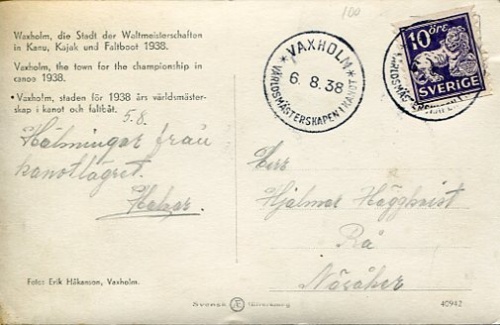 Waxholm, die Stadt der Weltmeisterschaften
in Kanu, Kajak und Faltboot 1938.
Vaxholm, the town for the championship in
canoe 1938.
• Vaxholm, staden för 1938 års världsmäster-
skap i kanot och faltbåt.
5.8.
Hälsningar från
kanotlägret.
Foto: Erik Håkanson, Vaxholm.
100
VAXHOLM
6.8.38
VÄRLDSMÄSTERSKAPEN I KANOT
10 ÖRE
SVERIGE
Herr
Hjalmar Häggkvist
Rå
Nösåker
Svensk Æ Tillverkning
40942